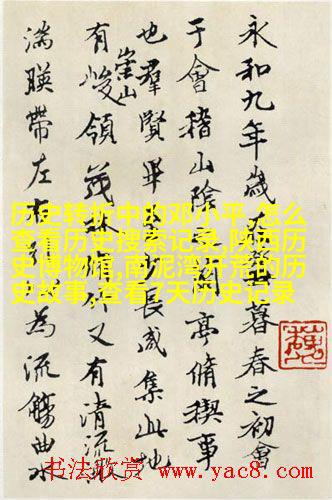 永和九年歲在癸丑暮春之初會
于會稽山陰之蘭亭脩禊事
也羣賢畢至少長咸集此地
有崇山峻領茂林脩竹又有清流激
湍暎帶左右引以為流觴曲水
历史转折中的邓小平,怎么
查看历史搜索记录,陕西历
史博物馆,南泥湾开荒的历
史故事,查看7天历史记录
书法欣赏 www.yac8.com